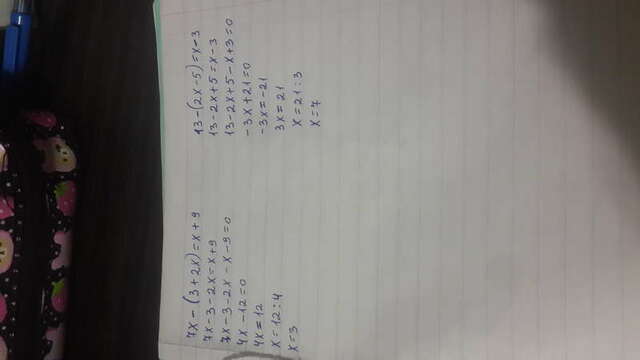 7x - (3 + 2x) = x + 9
7x - 3 - 2x = x + 9
7x - 3 - 2x - x - 9 = 0
4x - 12 = 0
4x = 12
x = 12 : 4
x = 3
13 - (2x - 5) = x - 3
13 - 2x + 5 = x - 3
13 - 2x + 5 - x + 3 = 0
-3x + 21 = 0
-3x = -21
3x = 21
x = 21 : 3
x = 7